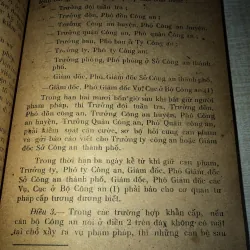 — Trưởng đội tuần tra,
— Trưởng đồn, Phó đồn Công an;
— Trưởng Công an huyện, Phó Công an
— Trưởng Công an quận, Phó Công an
— Trưởng ban, Phó ban Ty Công an;
— Trưởng Ty, Phó Ty Công an,
— Trưởng phòng, Phó phòng ở Sở Công an thành phố,
— Giám đốc, Phó Giám đốc Sở Công an thành phố,
— Giám đốc, Phó Giám đốc Vụ, Cục ở Bộ Công an (1)
Trong hạn hai mươi bốn giờ sau khi bắt giữ người
phạm pháp, thì Trưởng đội tuần tra, Trưởng đồn,
Phó đồn công an, Trưởng Công an huyện, Phó Công
an huyện, Trưởng Công an Quận, Phó Công an Quận,
phải kiểm soát căn cước, sơ bộ hỏi cung can phạm
và gửi báo cáo việc cho Trưởng Ty công an hoặc Giám
đốc Sở Công an thành phố.
Trong thời hạn ba ngày kể từ khi giữ can phạm,
Trưởng Ty, Phó Ty Công an, Giám đốc, Phó Giám đốc
Sở Công an thành phố, Giám đốc, Phó Giám đốc các
Vụ, Cục ở Bộ Công an (1) phải báo cho cơ quan tư
pháp cấp tương đương biết.
Điều 3.— Trong các trường hợp khẩn cấp, nếu
cán bộ Công an nói ở điều 2 trên đây không có mặt
tại chỗ xảy ra vụ phạm pháp, thì những cán bộ sau